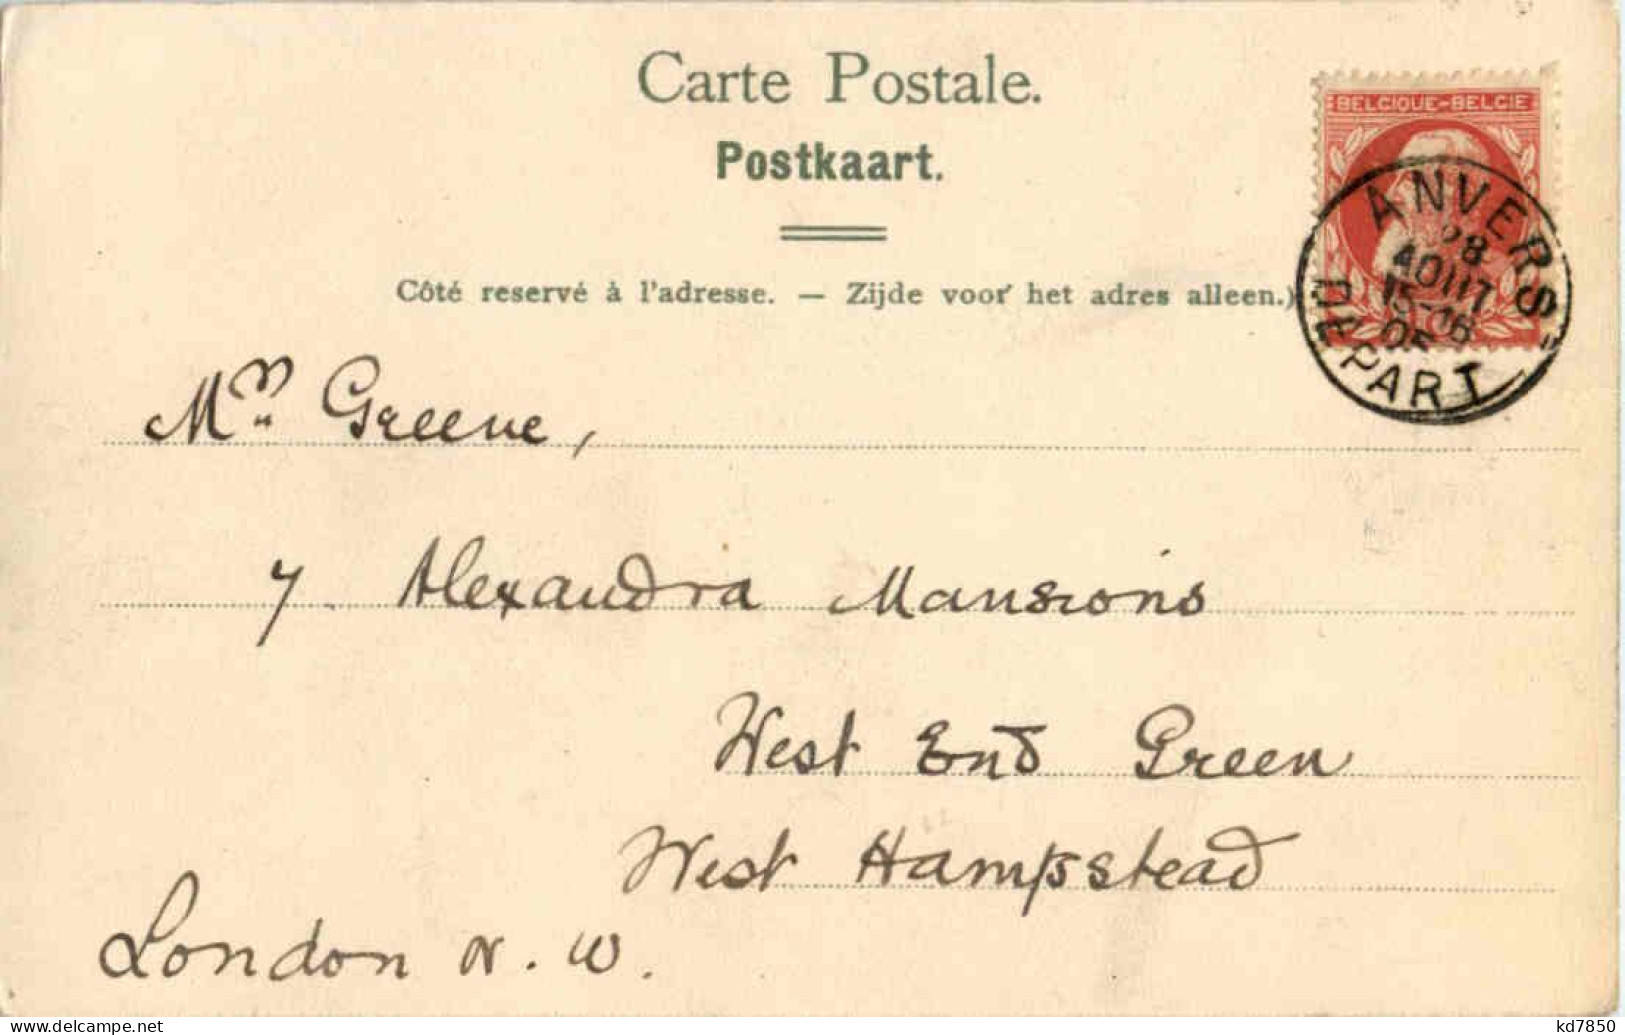 Carte Postale.
Postkaart.
BELGIQUE-BELGIE
ANVERS
28
AOUT
15-16
05
DEPART
Côté reservé à l'adresse. — Zijde voor het adres alleen.)
Mrs Greene,
7 Alexandra Mansions
West End Green
West Hampstead
London N. W.
kd7850